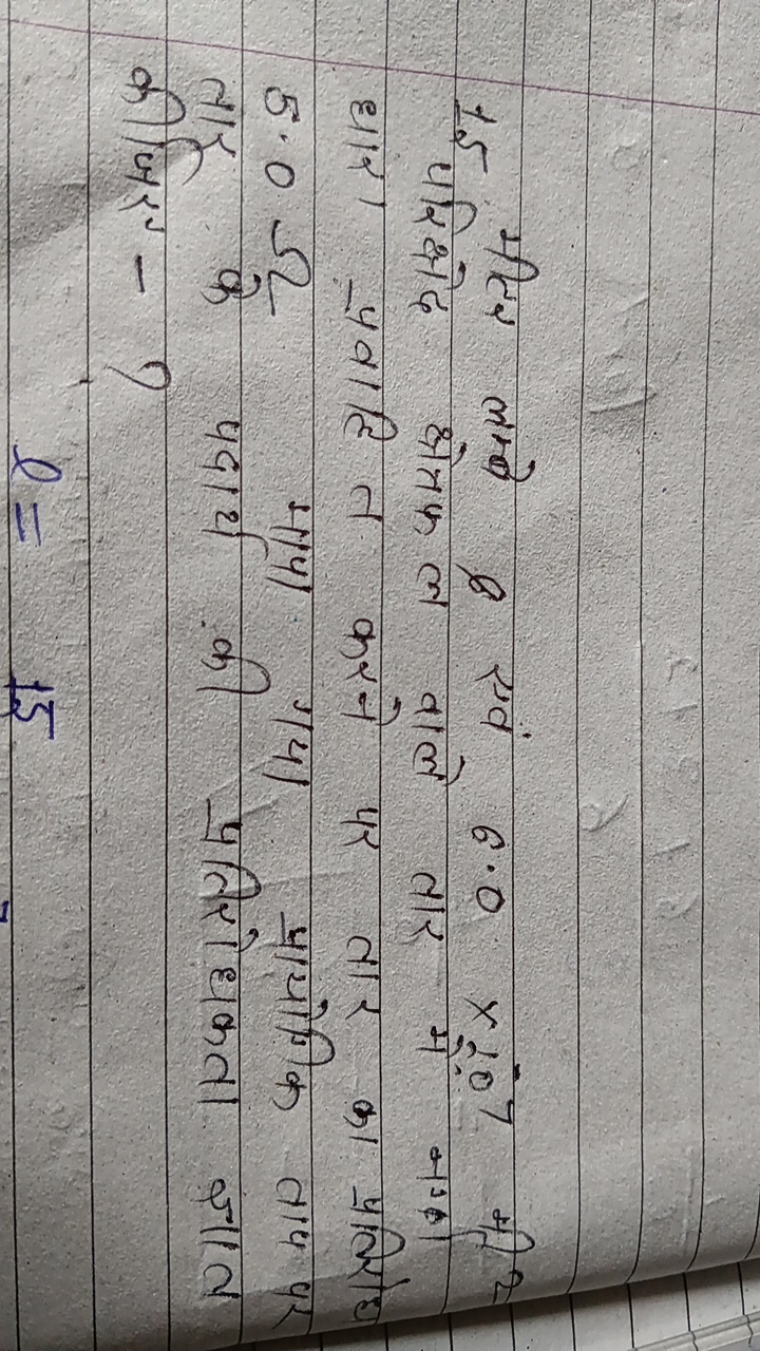 15 मीटर लम्बे व एवं 6.0 × 10⁻⁷ मी²
परिक्षेद क्षेत्रफल वाले तार में
धारा प्रवाहित करने पर तार का प्रतिरोध
5.0 Ω मापा गया प्रायोगिक ताप पर
तार के पदार्थ की प्रतिरोधकता ज्ञात
कीजिए - ?
l = 15